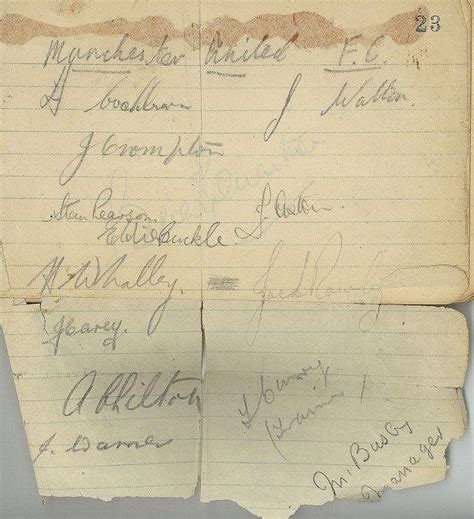 23
Manchester United F.C.
H Cockburn J Walton.
J Crompton
Stan Pearson
Eddie Buckle.
H Whalley. Jack Rowley
J Carey.
A Chilton
T Curry
(Trainer)
J. Warner
M Busby
Manager